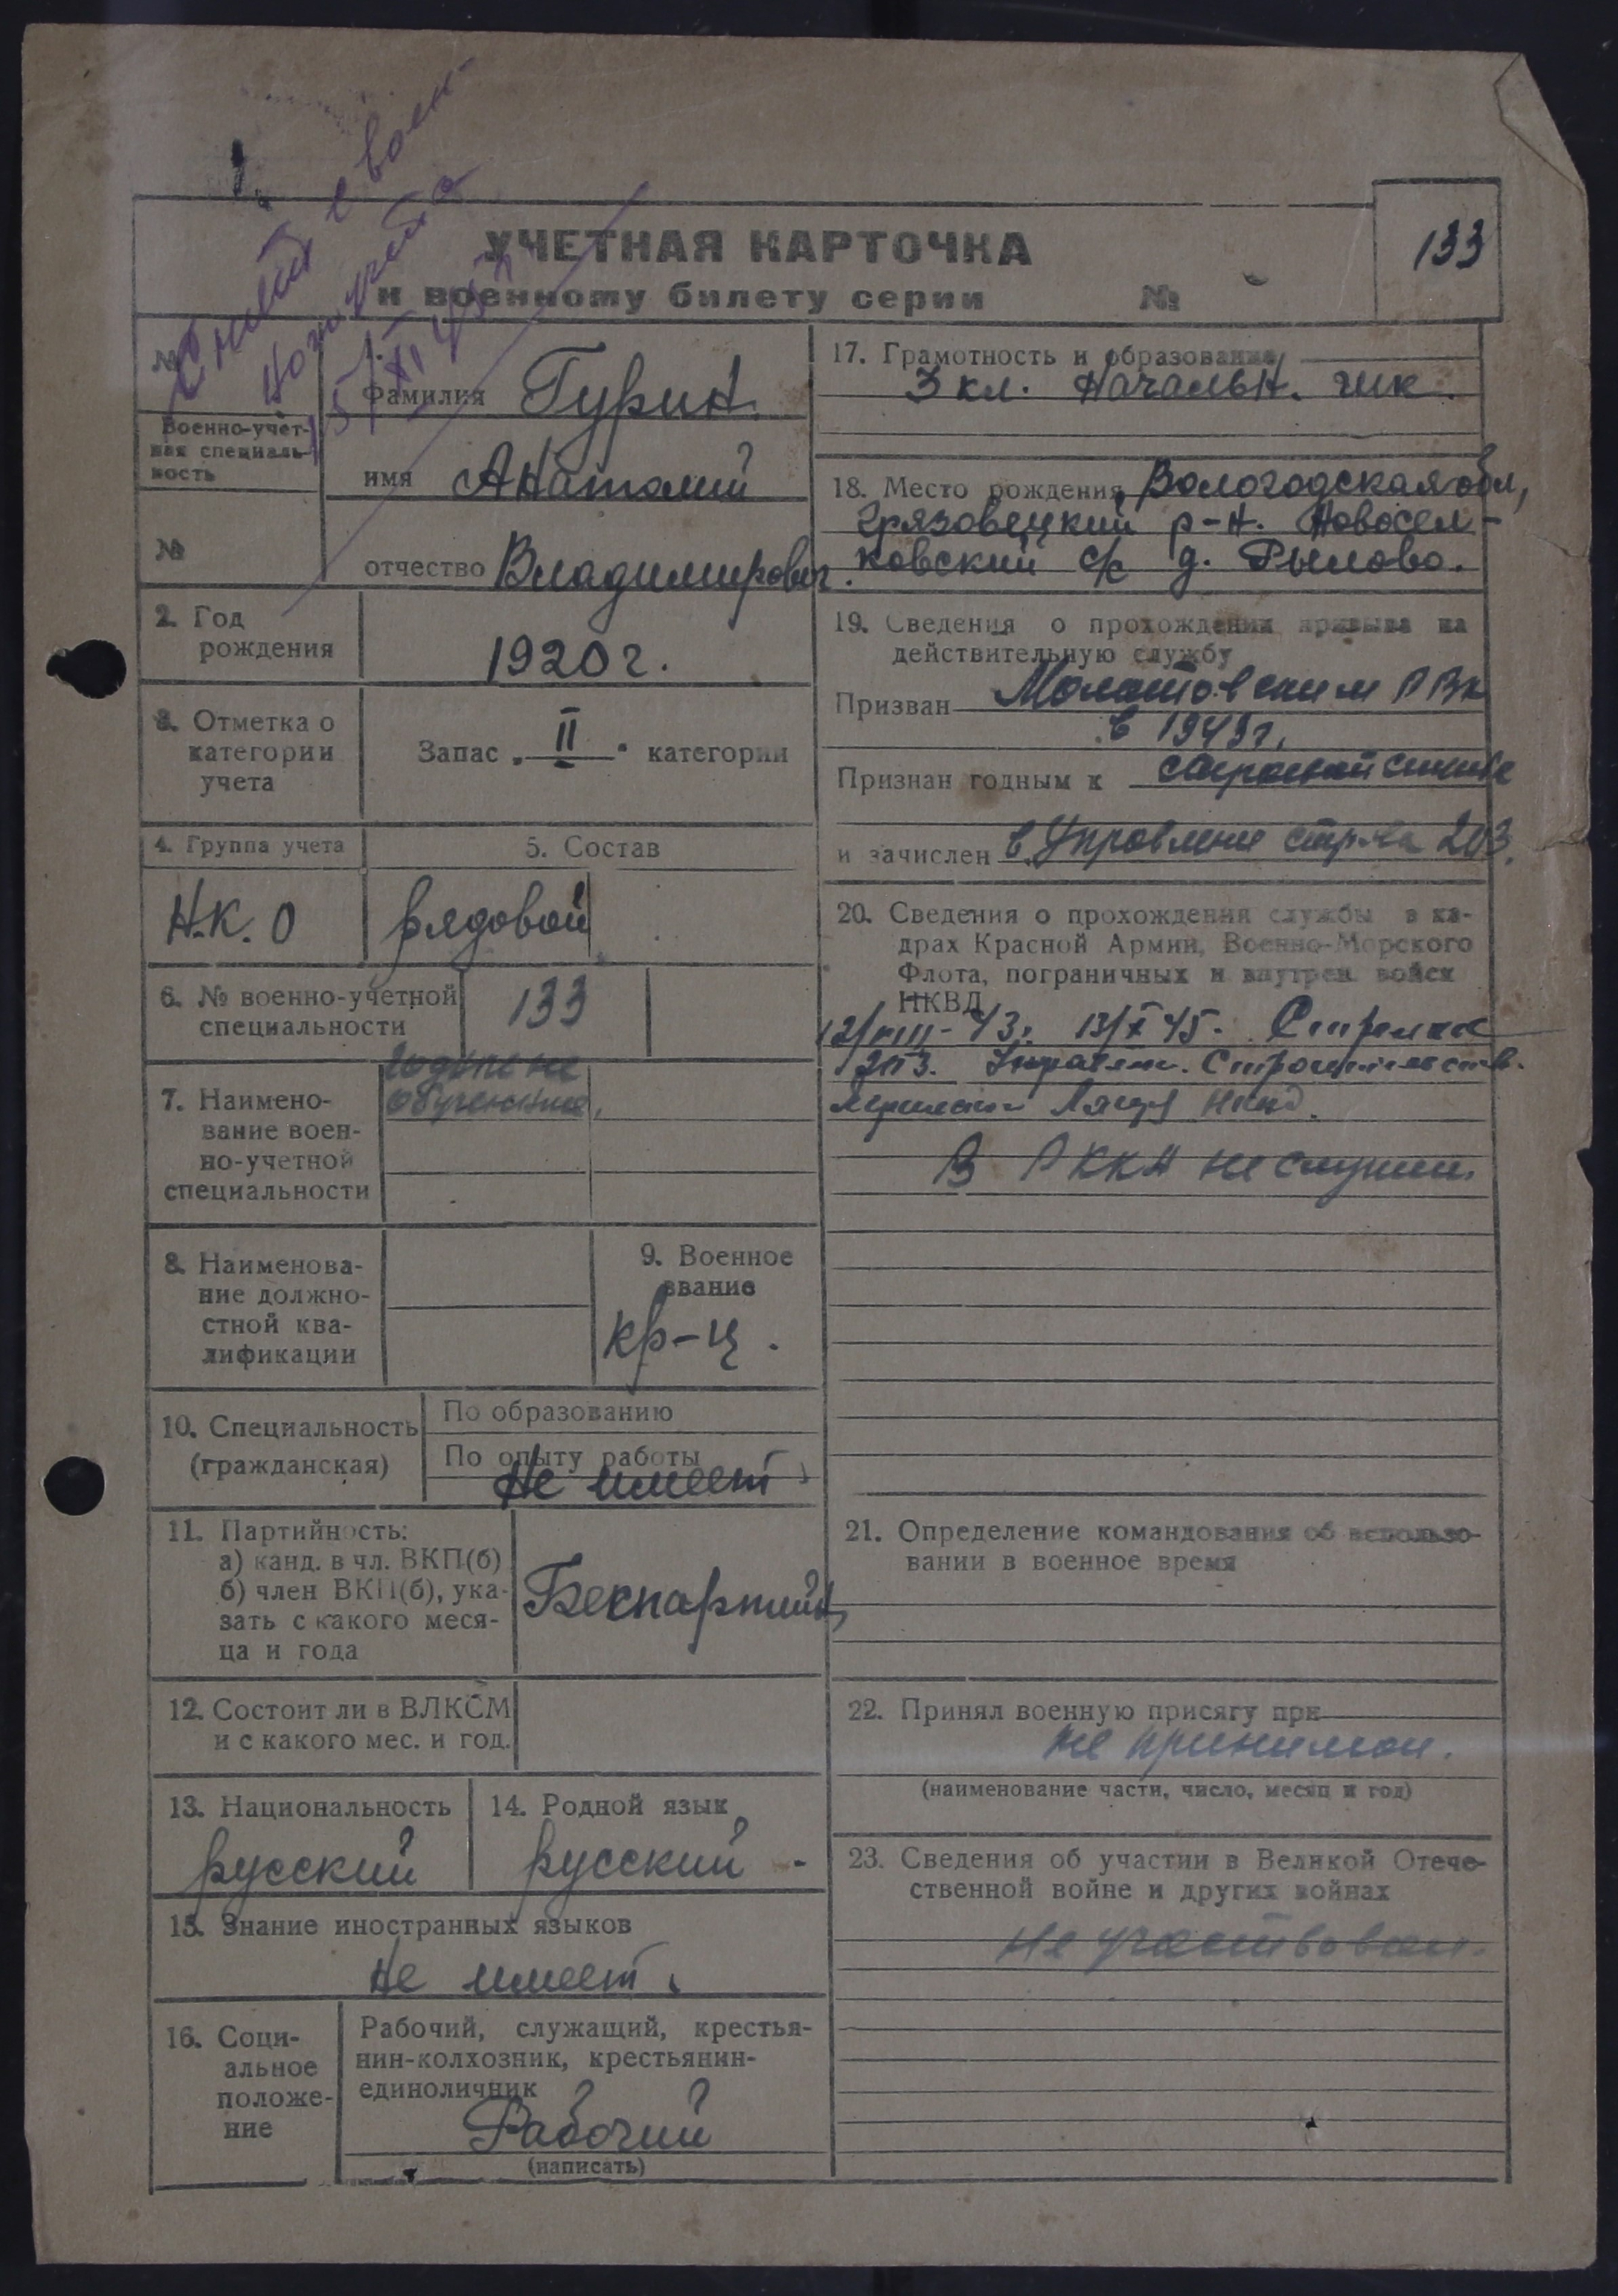 Снят с воен-
ного учета
15/XI
УЧЕТНАЯ КАРТОЧКА
к военному билету серии №
133
№
Военно-учет-
ная специаль-
ность
№
1.
Фамилия Гурин.
имя Анатолий
отчество Владимирович.
2. Год
рождения
1920 г.
3. Отметка о
категории
учета
Запас „ II " категории
4. Группа учета
Н.К.О
5. Состав
рядовой
6. № военно-учетной
специальности
133
7. Наимено-
вание воен-
но-учетной
специальности
годные не
обученные
8. Наименова-
ние должно-
стной ква-
лификации
9. Военное
звание
кр-ц.
10. Специальность
(гражданская)
По образованию
По опыту работы
Не имеет
11. Партийность:
а) канд. в чл. ВКП(б)
б) член ВКП(б), ука-
зать с какого меся-
ца и года
Беспартийн
12. Состоит ли в ВЛКСМ
и с какого мес. и год.
13. Национальность
русский
14. Родной язык
русский
15. Знание иностранных языков
Не имеет
16. Соци-
альное
положе-
ние
Рабочий, служащий, крестья-
нин-колхозник, крестьянин-
единоличник
Рабочий
(написать)
17. Грамотность и образование
3 кл. начальн. шк.
18. Место рождения Вологодская обл,
Грязовецкий р-н. Новосел-
ковский с/с д. Рылово.
19. Сведения о прохождении призыва на
действительную службу
Призван Молотовским РВК
в 1943 г.
Признан годным к
и зачислен в Управлени 203.
20. Сведения о прохождении службы в ка-
драх Красной Армии, Военно-Морского
Флота, пограничных и внутрен. войск
НКВД
12/VIII-43. 13/X 45. Стрелок
203. Управлен. Строительств.
В РККА не служил
21. Определение командования об использо-
вании в военное время
22. Принял военную присягу при
не принимал.
(наименование части, число, месяц и год)
23. Сведения об участии в Великой Отече-
ственной войне и других войнах
Не участвовал.